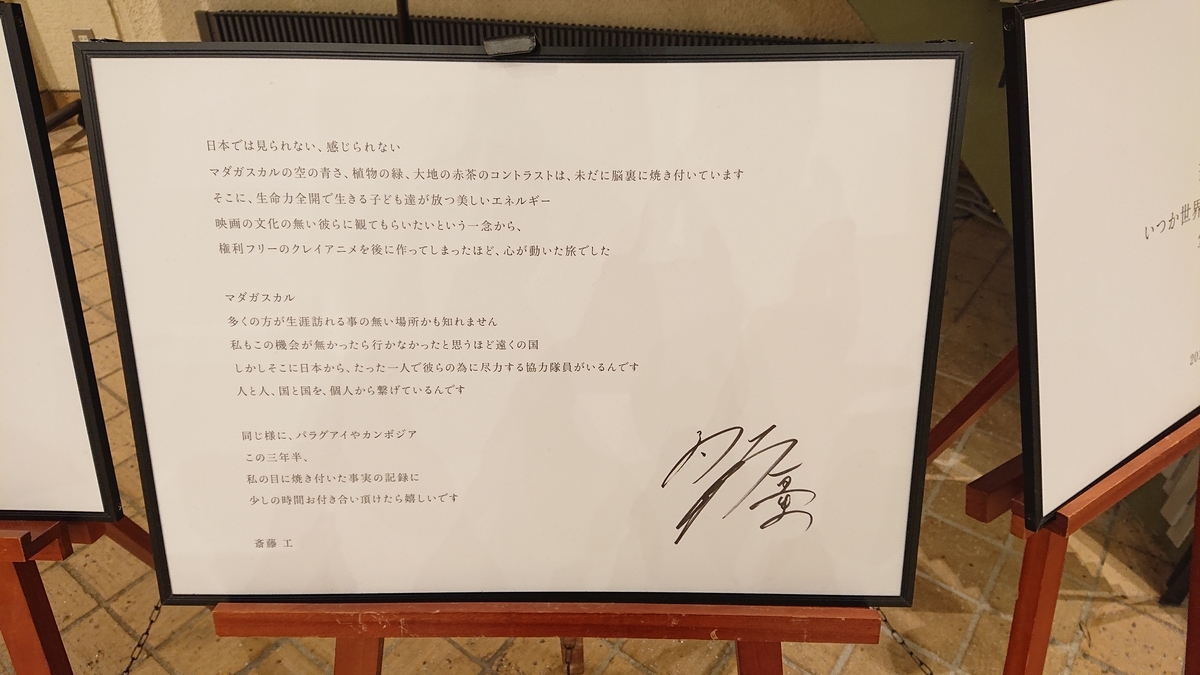 日本では見られない、感じられない
マダガスカルの空の青さ、植物の緑、大地の赤茶のコントラストは、未だに脳裏に焼き付いています
そこに、生命力全開で生きる子ども達が放つ美しいエネルギー
映画の文化の無い彼らに観てもらいたいという一念から、
権利フリーのクレイアニメを後に作ってしまったほど、心が動いた旅でした
マダガスカル
多くの方が生涯訪れる事の無い場所かも知れません
私もこの機会が無かったら行かなかったと思うほど遠くの国
しかしそこに日本から、たった一人で彼らの為に尽力する協力隊員がいるんです
人と人、国と国を、個人から繋げているんです
同じ様に、パラグアイやカンボジア
この三年半、
私の目に焼き付いた事実の記録に
少しの時間お付き合い頂けたら嬉しいです
斎藤 工
いつか世界